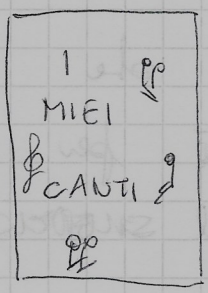 I
MIEI
CANTI